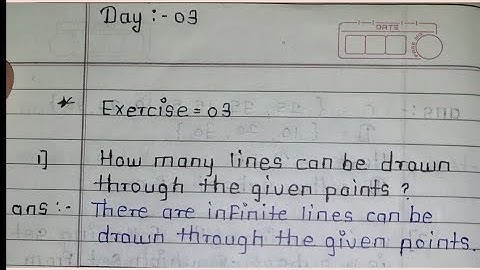 Day :- 03
DATE
* Exercise = 03
i] How many lines can be drawn
through the given points ?
ans :- There are infinite lines can be
drawn through the given points.